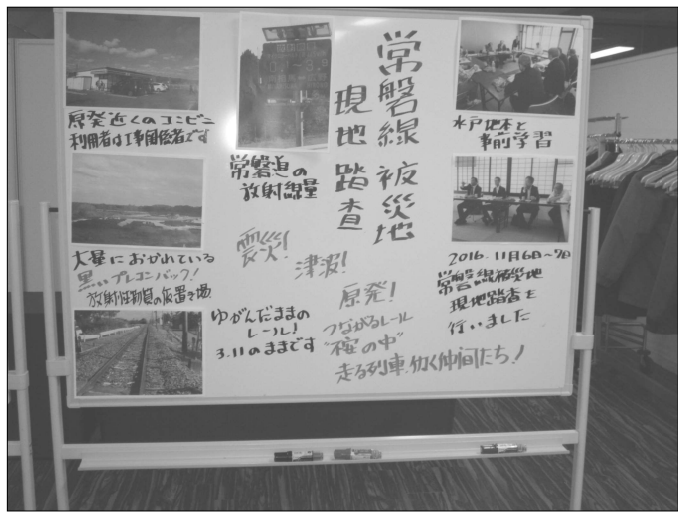 常磐線 被災地
現地 踏査
原発近くのコンビニ
利用者は工事関係者です
常磐道の
放射線量
水戸地本と
事前学習
大量におかれている
黒いプレコンバック!
放射性物質の仮置き場
震災!
津波!
原発!
2016. 11月6日~7日
常磐線被災地
現地踏査を
行いました
ゆがんだままの
レール!
3.11のままです
つながるレール
の中"
走る列車、働く仲間たち!